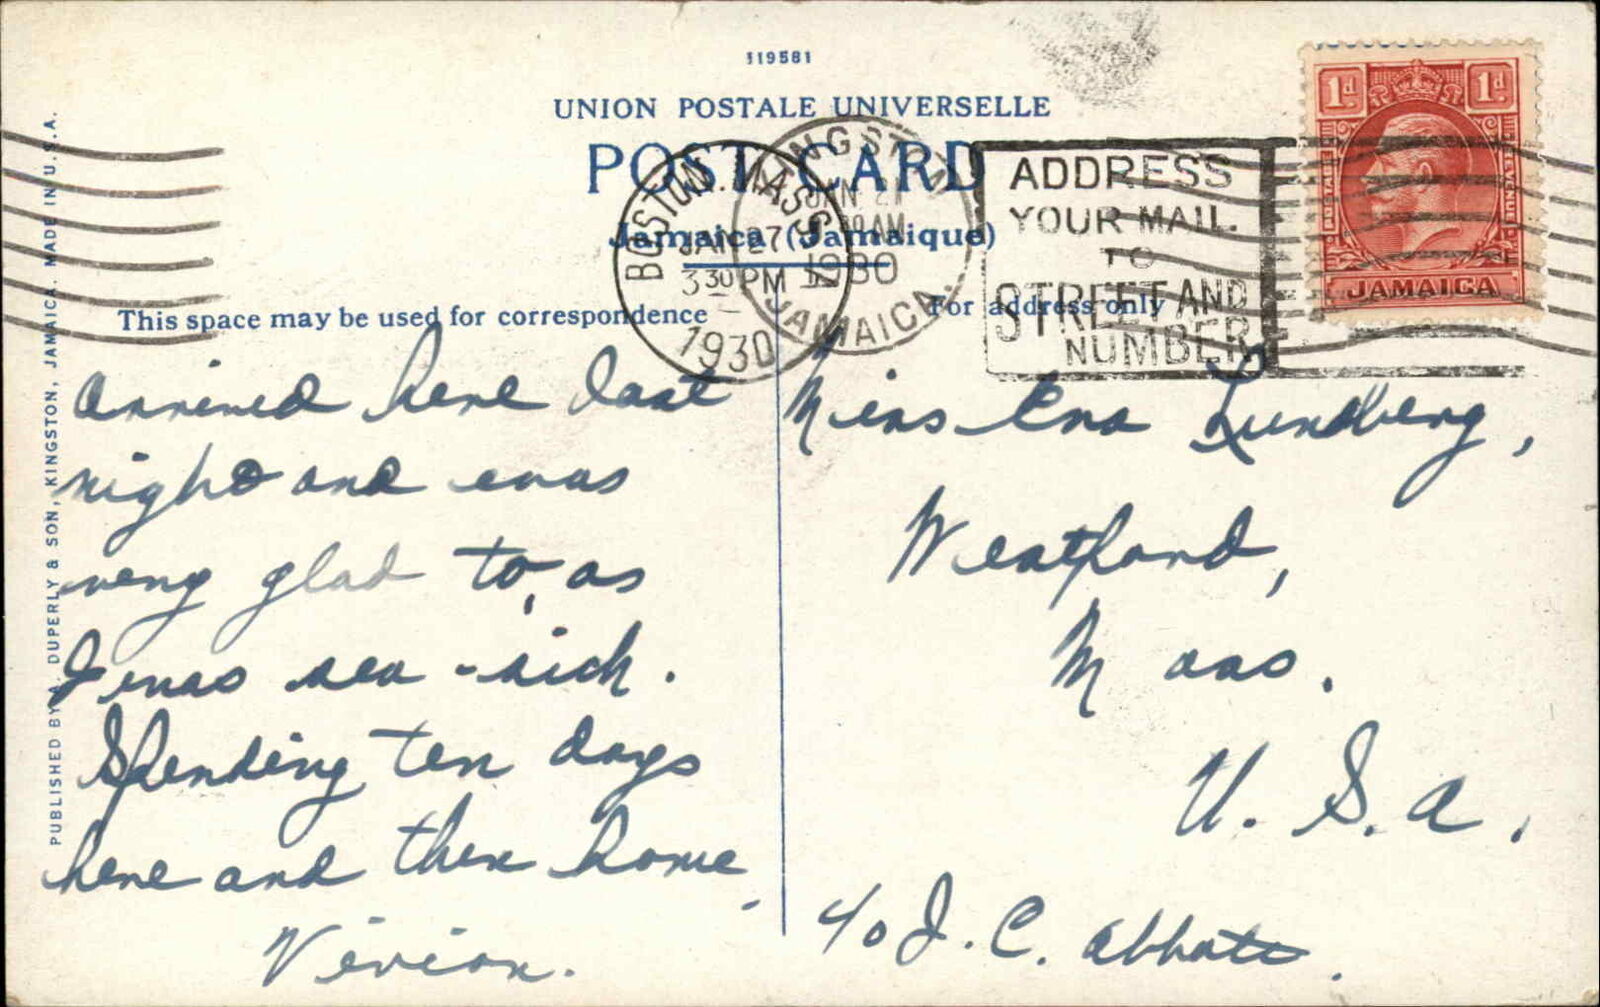 119581
UNION POSTALE UNIVERSELLE
POST CARD
Jamaica (Jamaique)
This space may be used for correspondence
For address only
PUBLISHED BY A. DUPERLY & SON, KINGSTON, JAMAICA. MADE IN U.S.A.
BOSTON MASS
JAN 27
3 30 PM
1930
KINGSTON
JAN 21
AM
1930
JAMAICA.
ADDRESS
YOUR MAIL
TO
STREET AND
NUMBER
1d 1d
POSTAGE REVENUE
JAMAICA
Arrived here last
night and was
very glad to, as
I was sea-sick.
Spending ten days
here and then home.
Vivian.
Miss Ena Lundberg,
Westford,
Mass.
U.S.A.
c/o J. C. Abbott.